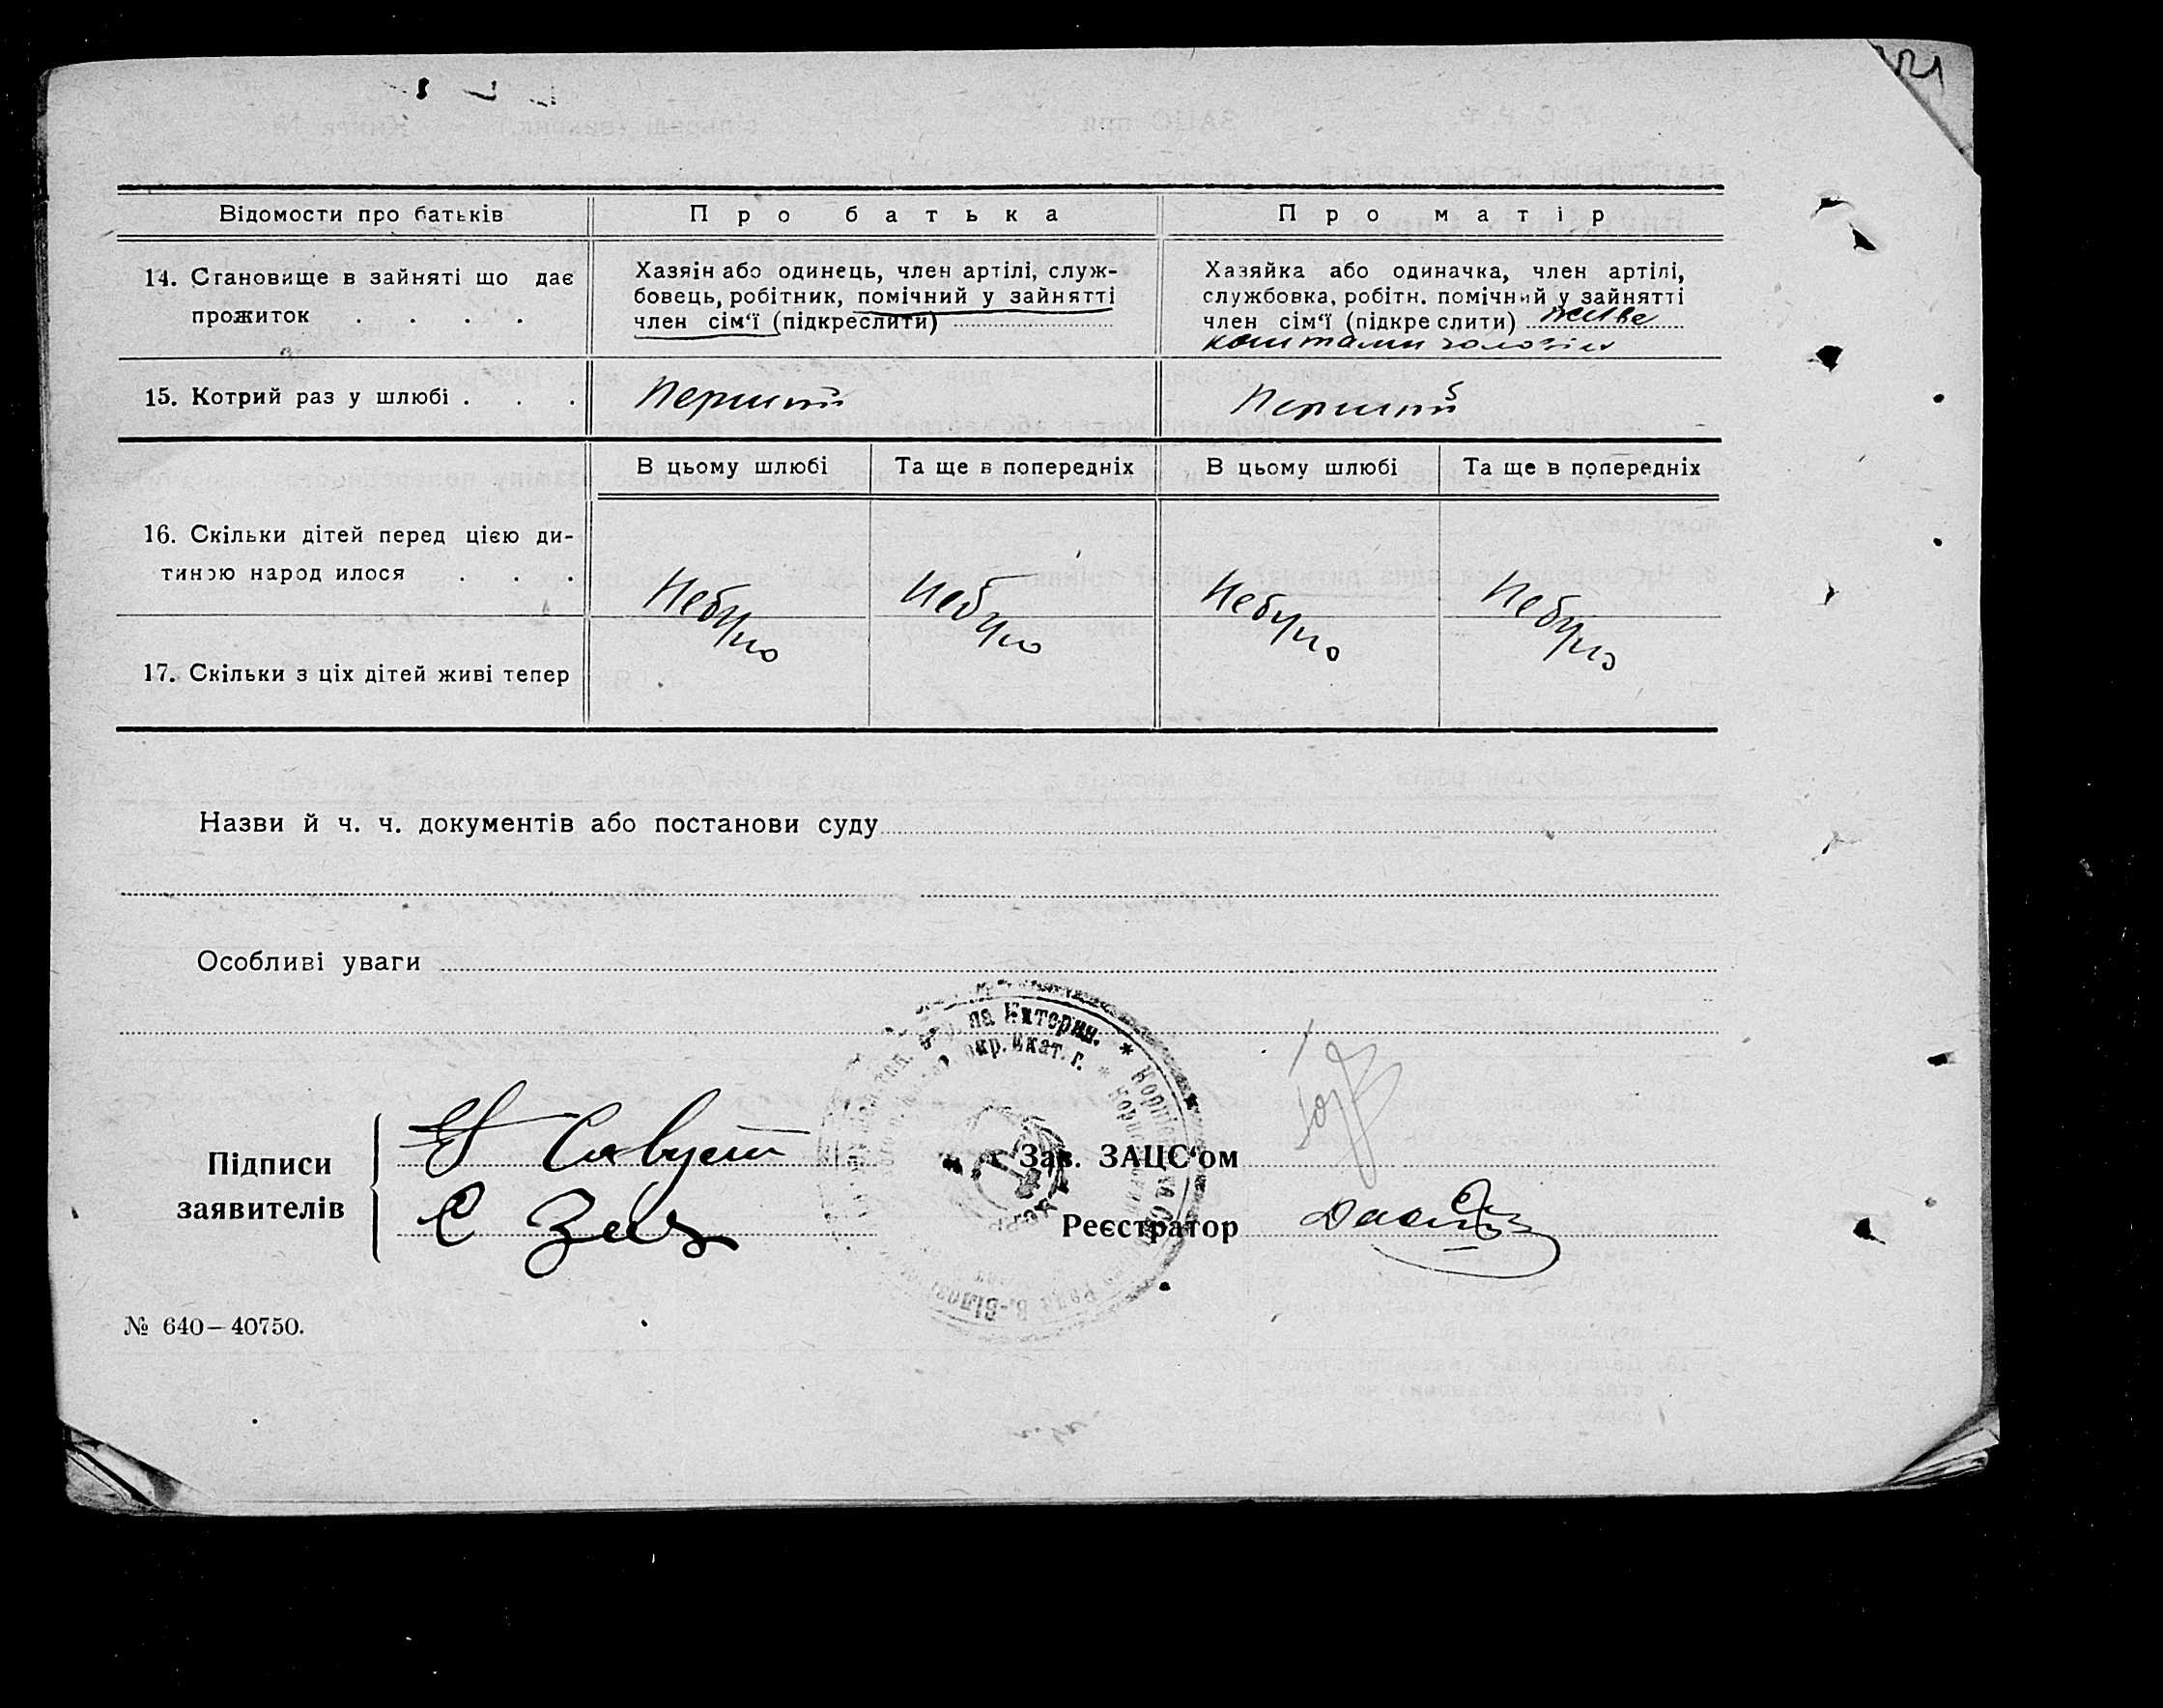 121
Відомости про батьків
Про батька
Про матір
14. Становище в зайняті що дає
прожиток . . . .
Хазяін або одинець, член артілі, служ-
бовець, робітник, помічний у зайнятті
член сім'ї (підкреслити)
Хазяйка або одиначка, член артілі,
службовка, робітн. помічний у зайнятті
член сім'ї (підкре слити) живе
коштами
15. Котрий раз у шлюбі . . .
Перший
Перший
В цьому шлюбі
Та ще в попередніх
В цьому шлюбі
Та ще в попередніх
16. Скільки дітей перед цією ди-
тиною народ илося . . .
Небуло
Небуло
Небуло
Небуло
17. Скільки з ціх дітей живі тепер
Назви й ч. ч. документів або постанови суду
Особливі уваги
Підписи
заявителів
Зав. ЗАЦС'ом
Реєстратор
№ 640—40750.